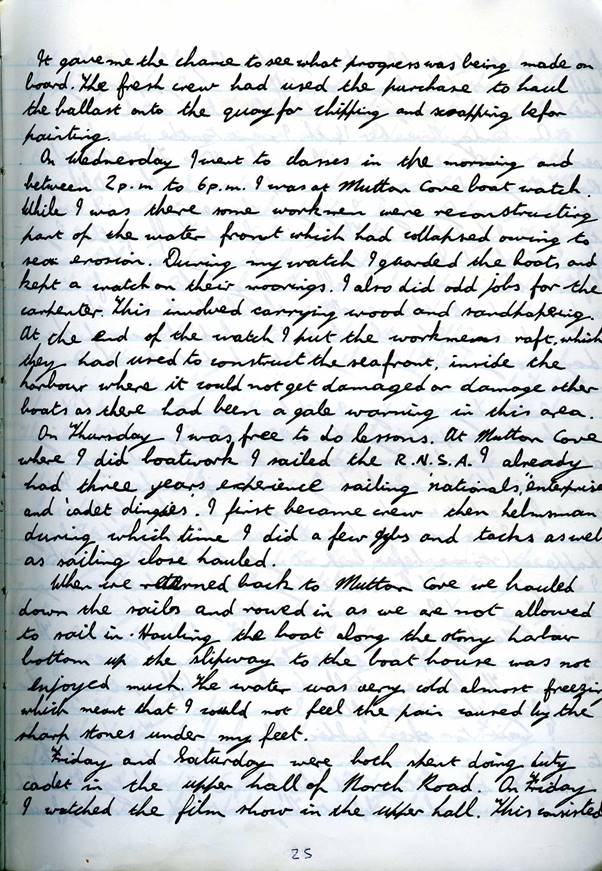 It gave me the chance to see what progress was being made on
board. The fresh crew had used the purchase to haul
the ballast onto the quay for chipping and scrapping befor
painting.
On Wednesday I went to classes in the morning and
between 2p.m to 6p.m. I was at Mutton Cove boat watch.
While I was there some workmen were reconstructing
part of the water front which had collapsed owing to
sea erosion. During my watch I guarded the boats and
kept a watch on their moorings. I also did odd jobs for the
carpenter. This involved carrying wood and sandpapering.
At the end of the watch I put the workmens raft, which
they had used to construct the seafront, inside the
harbour where it could not get damaged or damage other
boats as there had been a gale warning in this area.
On Thursday I was free to do lessons. At Mutton Cove
where I did boatwork I sailed the R.N.S.A. I already
had three years experience sailing 'nationals', 'enterprise
and 'cadet dingies'. I first became crew then helmsman
during which time I did a few gybs and tacks as well
as sailing close hauled.
When we returned back to Mutton Cove we hauled
down the sails and rowed in as we are not allowed
to sail in. Hauling the boat along the stony harbour
bottom up the slipway to the boat house was not
enjoyed much. The water was very cold almost freezing
which meant that I could not feel the pain caused by the
sharp stones under my feet.
Friday and Saturday were both spent doing duty
cadet in the upper hall of North Road. On Friday
I watched the film show in the upper hall. This consisted
25